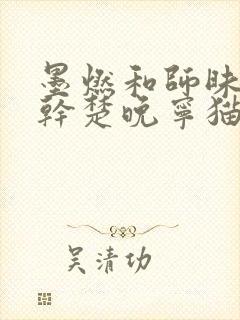 墨燃和師昧
幹楚晚寧猫
吴清功